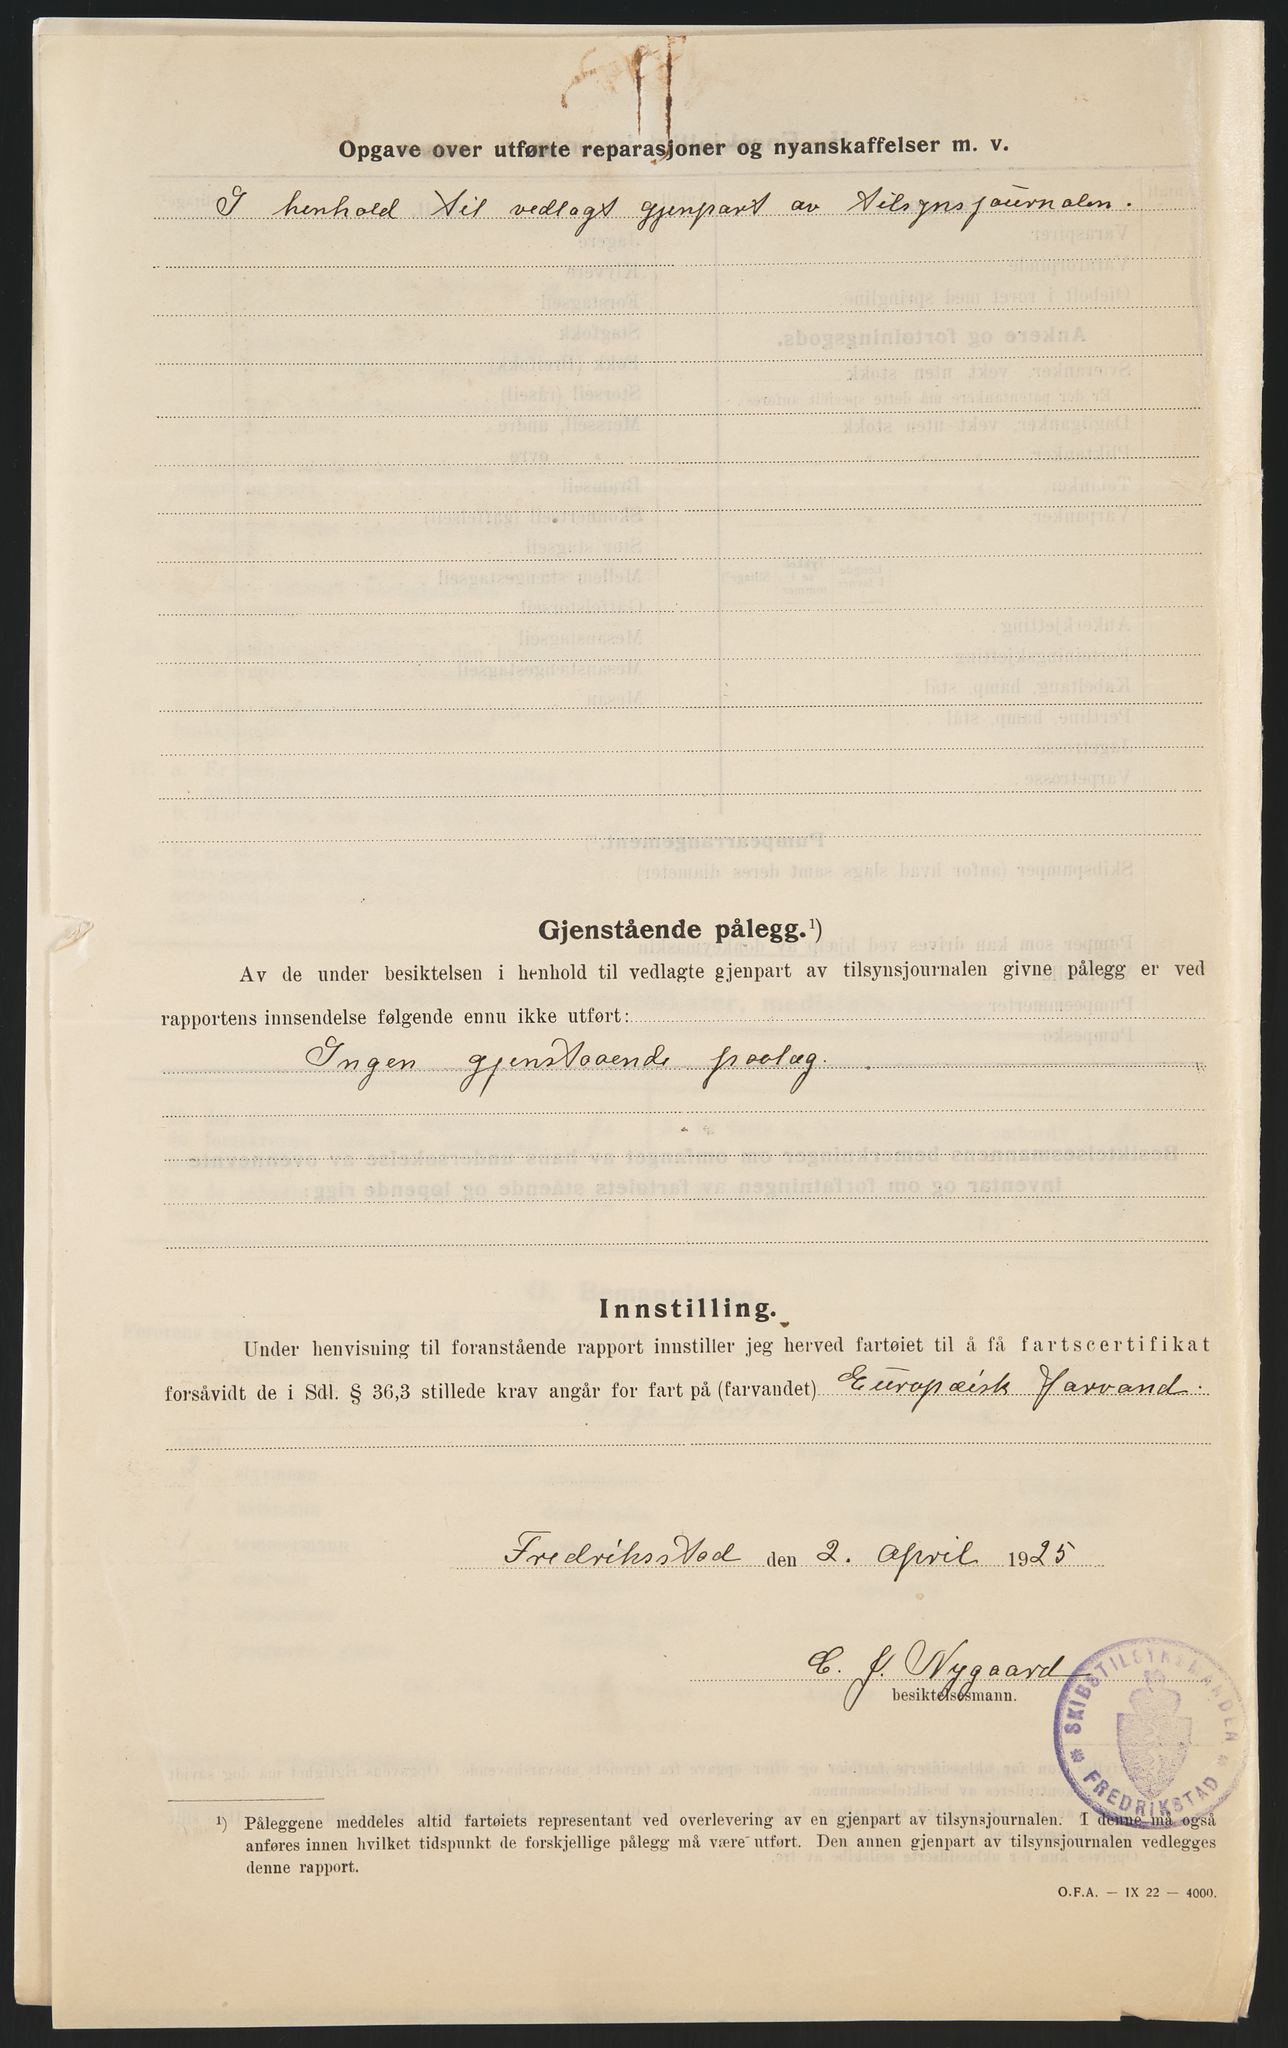 Opgave over utførte reparasjoner og nyanskaffelser m. v.
I henhold til vedlagt gjenpart av tilsynsjournalen.
Gjenstående pålegg.¹)
Av de under besiktelsen i henhold til vedlagte gjenpart av tilsynsjournalen givne pålegg er ved
rapportens innsendelse følgende ennu ikke utført:
Ingen gjenstaaende paalæg.
Innstilling.
Under henvisning til foranstående rapport innstiller jeg herved fartøiet til å få fartscertifikat
forsåvidt de i Sdl. § 36,3 stillede krav angår for fart på (farvandet) Europæisk Farvand.
Fredriksstad den 2. April 1925
C. J. Nygaard
besiktelsesmann.
SKIBSTILSYNSMANDEN
FREDRIKSTAD
¹) Påleggene meddeles altid fartøiets representant ved overlevering av en gjenpart av tilsynsjournalen. I denne må også
anføres innen hvilket tidspunkt de forskjellige pålegg må være utført. Den annen gjenpart av tilsynsjournalen vedlegges
denne rapport.
O.F.A. — IX 22 — 4000.